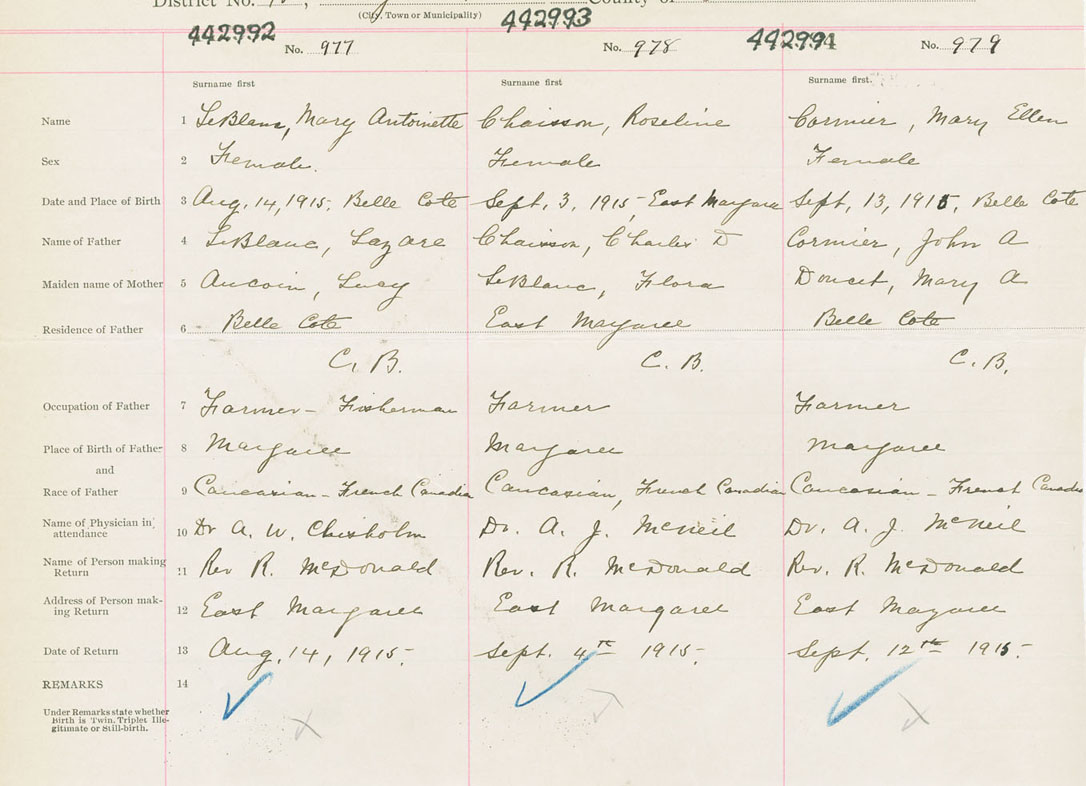 District No.
County of
(City, Town or Municipality)
442992 442993 442994
No. 977 No. 978 No. 979
Surname first Surname first Surname first.
Name 1 LeBlanc, Mary Antoinette Chaisson, Roseline Cormier, Mary Ellen
Sex 2 Female. Female Female
Date and Place of Birth 3 Aug. 14, 1915, Belle Cote Sept. 3, 1915, East Margaree Sept, 13, 1915, Belle Cote
Name of Father 4 LeBlanc, Lazare Chaisson, Charles D Cormier, John A
Maiden name of Mother 5 Aucoin, Lucy LeBlanc, Flora Doucet, Mary A
Residence of Father 6 Belle Cote East Margaree Belle Cote
C. B. C. B. C. B.
Occupation of Father 7 Farmer - Fisherman Farmer Farmer
Place of Birth of Father 8 Margaree Margaree Margaree
and
Race of Father 9 Caucasian - French Canadian Caucasian, French Canadian Caucasian - French Canadian
Name of Physician in attendance 10 Dr A. W. Chisholm Dr. A. J. McNeil Dr. A. J. McNeil
Name of Person making Return 11 Rev R. McDonald Rev. R. McDonald Rev. R. McDonald
Address of Person mak-
ing Return 12 East Margaree East Margaree East Margaree
Date of Return 13 Aug. 14, 1915. Sept. 4th 1915. Sept. 12th 1915.
REMARKS 14
Under Remarks state whether
Birth is Twin, Triplet Ille-
gitimate or Still-birth.